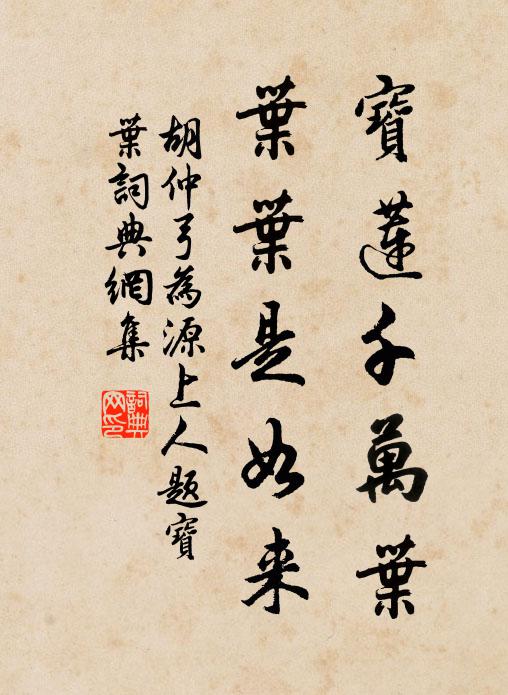 寶蓮千萬葉
葉葉是如来
胡仲弓為源上人題寶
葉詞典網集
詞典
网印